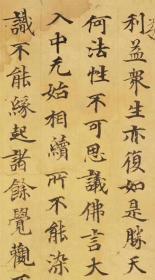 利益眾生亦復如是勝天
何法性不可思議佛言大
入中無始相續所不能染
識不能緣起諸餘覺觀不